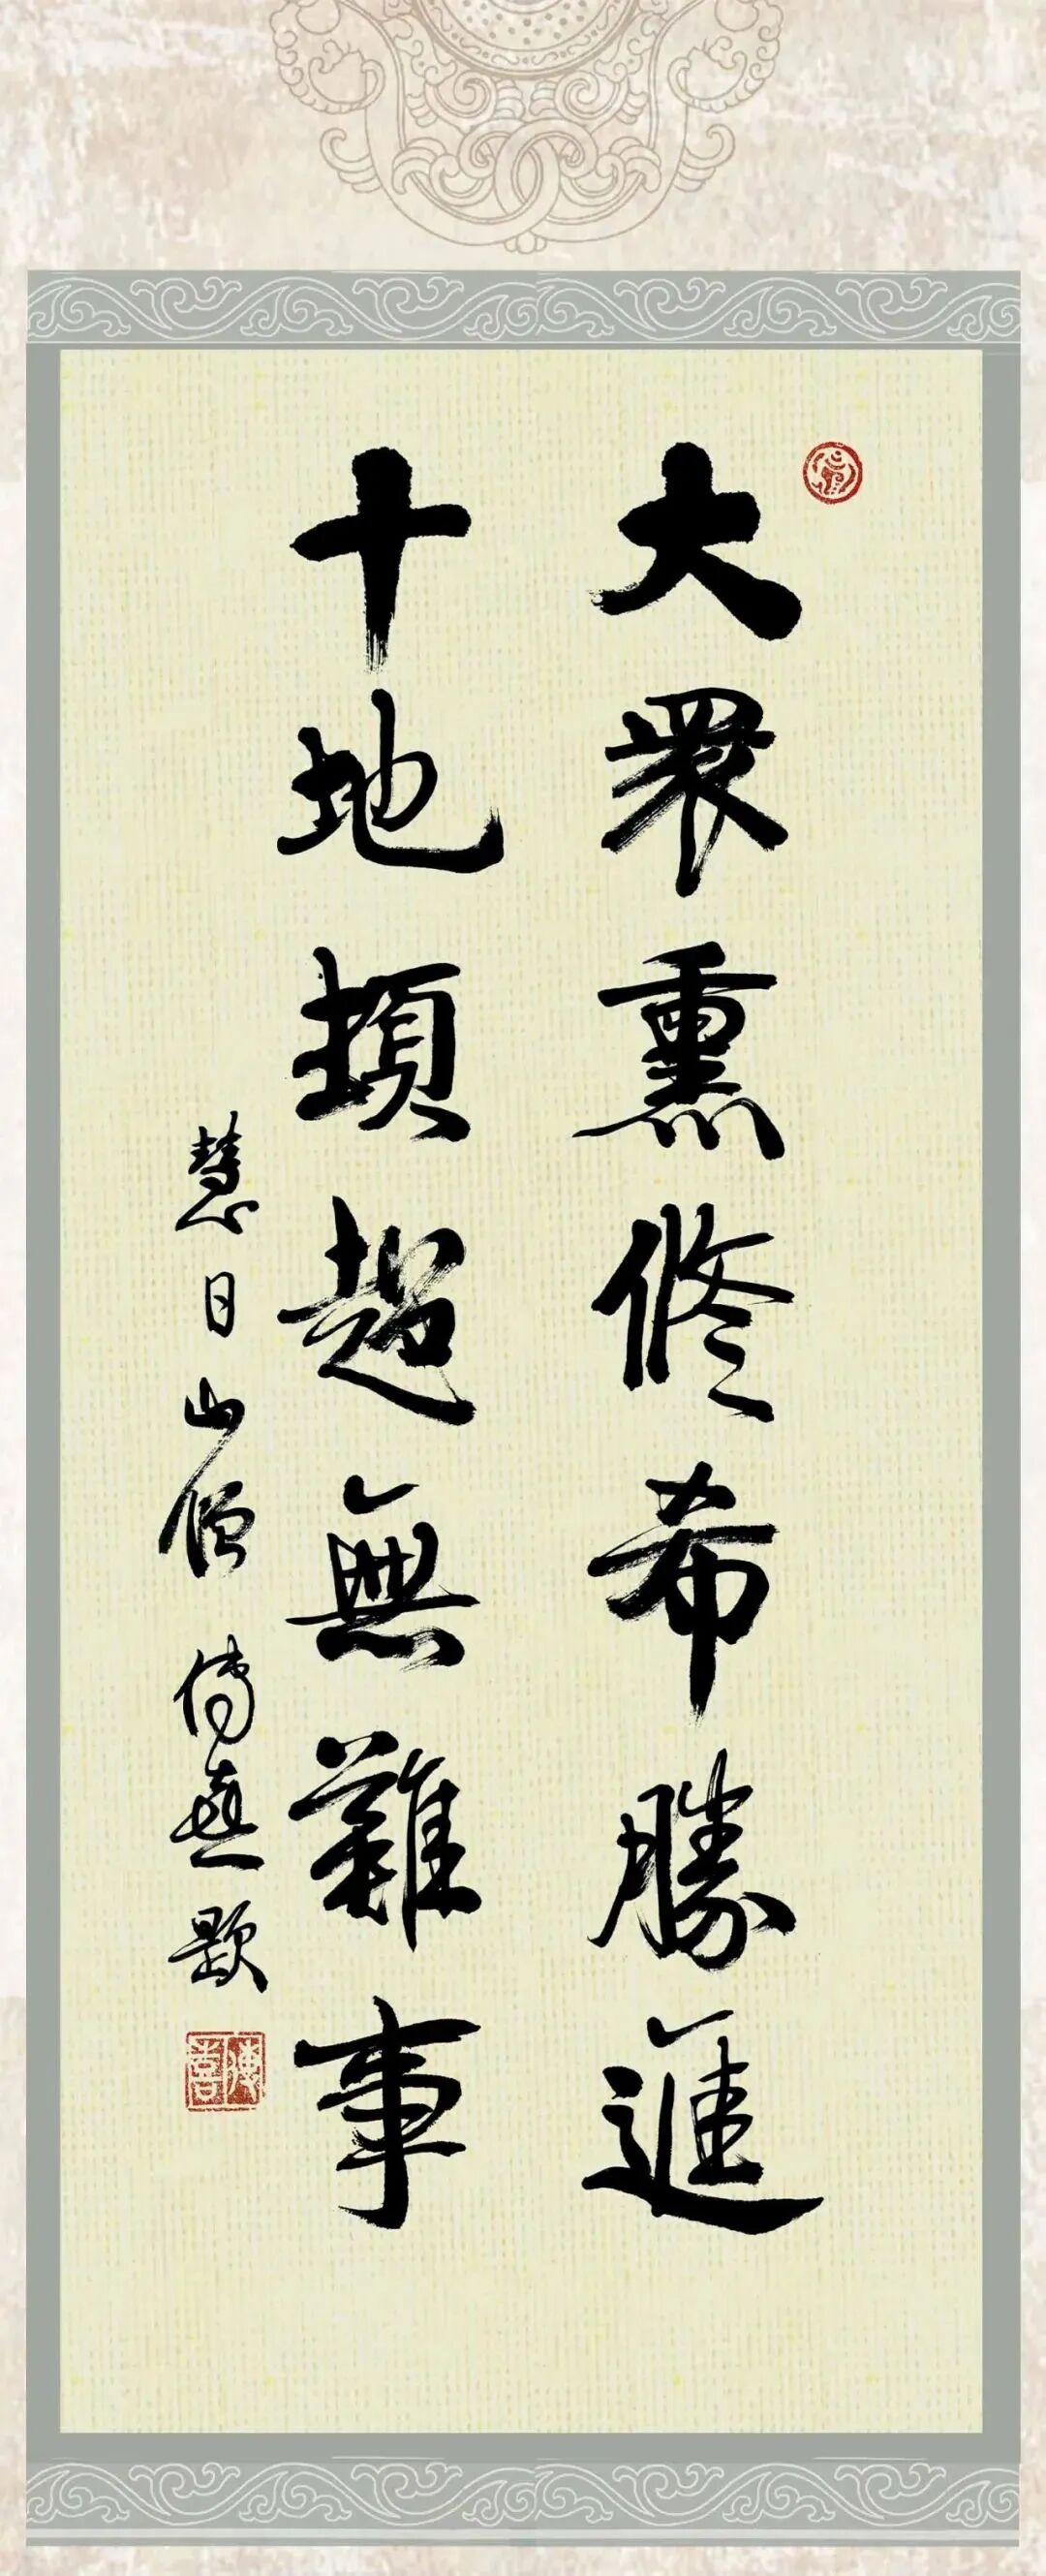 大衆熏修希勝進
十地頓超無難事
慧日山僧 傳喜題
傳喜